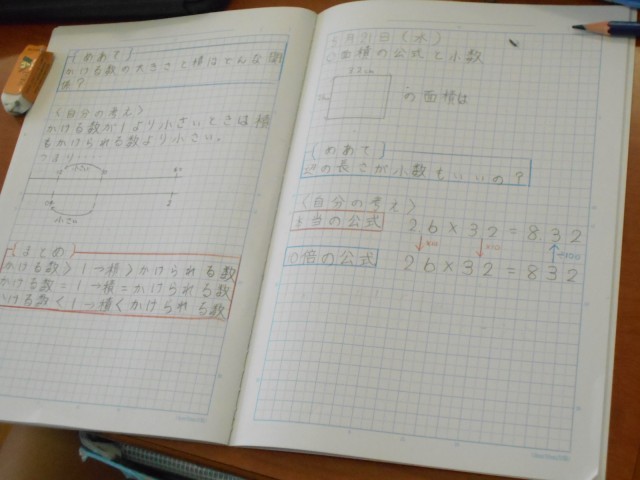 [めあて]
かける数の大きさと積はどんな関
係?
〈自分の考え〉
かける数が1より小さいときは積
もかけられる数より小さい。
つまり
小さい
小さい
[まとめ]
かける数>1→積>かけられる数
かける数=1→積=かけられる数
かける数<1→積<かけられる数
月21日(水)
面積の公式と小数
の面積は
[めあて]
辺の長さが小数もいいの?
〈自分の考え〉
本当の公式
2.6×3.2=8.32
×10
×10
÷100
10倍の公式
26×32=832